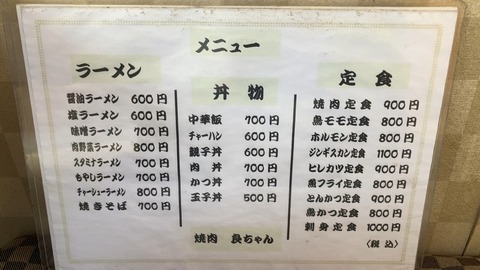 メニュー
ラーメン
醤油ラーメン 600円
塩ラーメン 600円
味噌ラーメン 700円
肉野菜ラーメン 800円
スタミナラーメン 700円
もやしラーメン 700円
チャーシューラーメン 800円
焼きそば 700円
丼物
中華飯 700円
チャーハン 600円
親子丼 600円
肉丼 700円
かつ丼 700円
玉子丼 500円
定食
焼肉定食 900円
鳥モモ定食 800円
ホルモン定食 800円
ジンギスカン定食 1100円
ヒレカツ定食 900円
魚フライ定食 800円
とんかつ定食 900円
鳥かつ定食 800円
刺身定食 1000円
〈税込〉
焼肉 良ちゃん